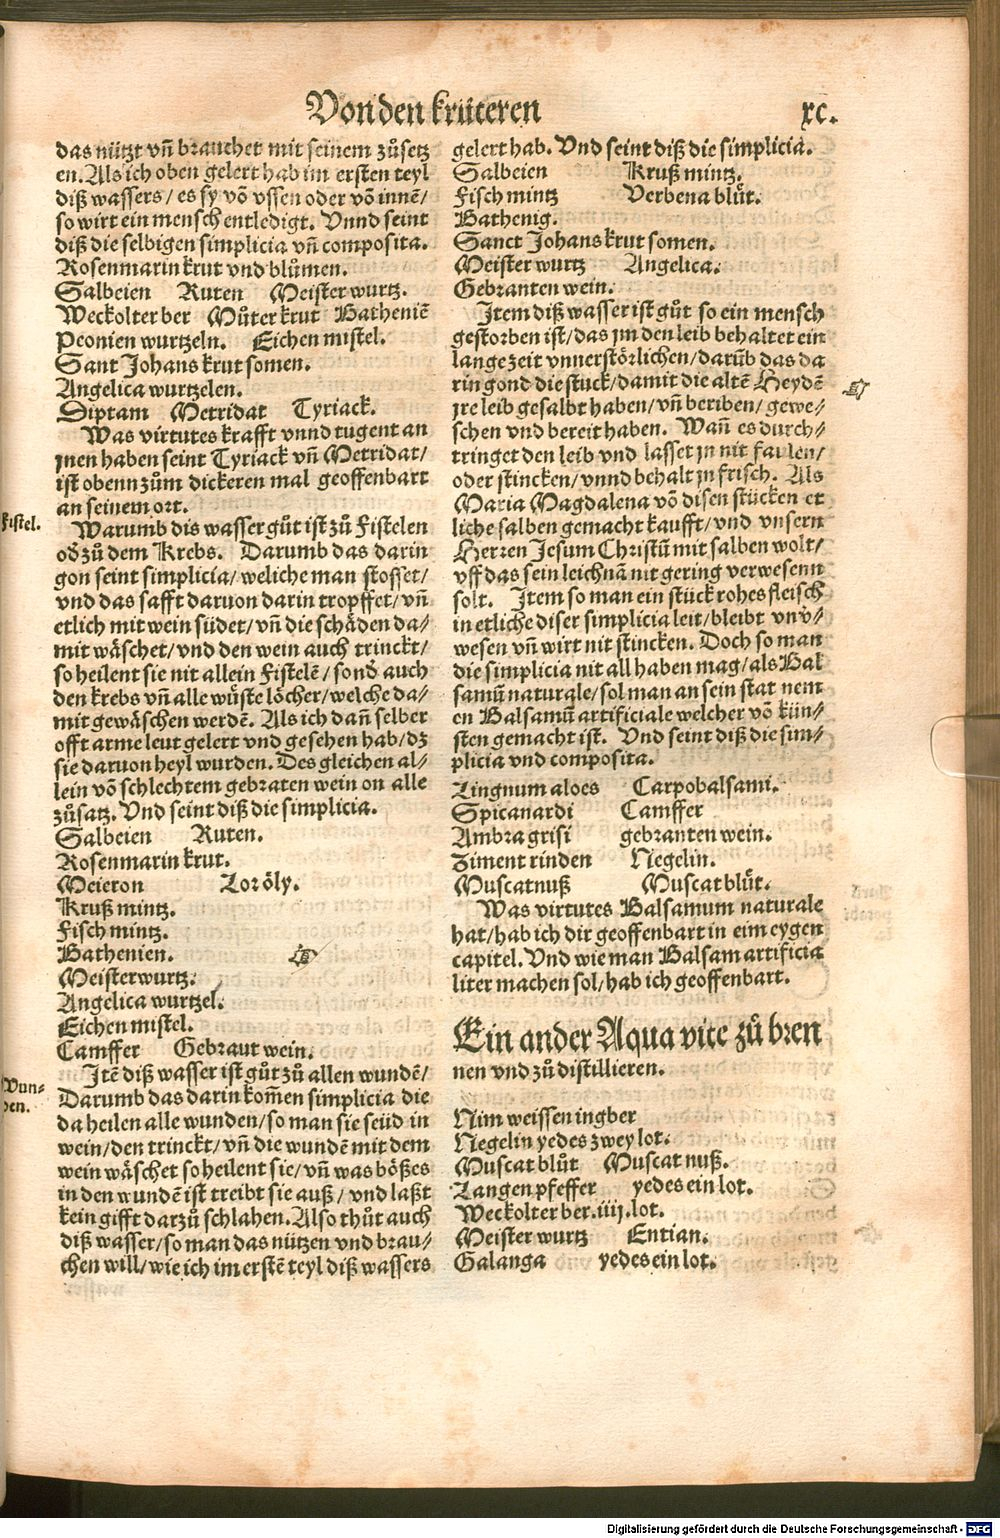 Von den krüteren xc.
das nützt vñ brauchet mit seinem zůsetz
en. Als ich oben gelert hab im ersten teyl
diß wassers / es sy vō vssen oder vō innē /
so wirt ein mensch entledigt. Vnnd seint
diß die selbigen simplicia vñ composita.
Rosenmarin krut vnd blůmen.
Salbeien Ruten Meister wurtz.
Weckolter ber Můter krut Batheniē
Peonien wurtzeln. Eichen mistel.
Sant Johans krut somen.
Angelica wurtzelen.
Diptam Metridat Tyriack.
Was virtutes krafft vnnd tugent an
jnen haben seint Tyriack vñ Metridat /
ist obenn zům dickeren mal geoffenbart
an seinem ort.
Fistel.
Warumb dis wasser gůt ist zů Fistelen
od̛ zů dem Krebs. Darumb das darin
gon seint simplicia / weliche man stosset /
vnd das safft daruon darin tropffet / vñ
etlich mit wein südet / vñ die schäden da⸗
mit wäschet / vnd den wein auch trinckt /
so heilent sie nit allein Fistelē / sond̛ auch
den krebs vñ alle wüste löcher / welche da⸗
mit gewäschen werdē. Als ich dañ selber
offt arme leut gelert vnd gesehen hab / dz
sie daruon heyl wurden. Des gleichen al⸗
lein vō schlechtem gebraten wein on alle
zůsatz. Vnd seint diß die simplicia.
Salbeien Ruten.
Rosenmarin krut.
Meieron Lor öly.
Kruß mintz.
Fisch mintz.
Bathenien.
Meisterwurtz.
Angelica wurtzel.
Eichen mistel.
Camffer Gebraut wein.
Wun⸗
den.
Itē diß wasser ist gůt zů allen wundē /
Darumb das darin kom̃en simplicia die
da heilen alle wunden / so man sie seüd in
wein / den trinckt / vñ die wundē mit dem
wein wäschet so heilent sie / vñ was bößes
in den wundē ist treibt sie auß / vnd laßt
kein gifft darzů schlahen. Also thůt auch
diß wasser / so man das nützen vnd brau⸗
chen will / wie ich im erstē teyl diß wassers
gelert hab. Vnd seint diß die simplicia.
Salbeien Kruß mintz.
Fisch mintz Verbena blůt.
Bathenig.
Sanct Johans krut somen.
Meister wurtz Angelica.
Gebranten wein.
Item diß wasser ist gůt so ein mensch
gestorben ist / das jm den leib behaltet ein
lange zeit vnnerstörlichen / darūb das da
rin gond die stuck / damit die altē Heydē
jre leib gesalbt haben / vñ beriben / gewe⸗
schen vnd bereit haben. Wañ es durch⸗
tringet den leib vnd lasset jn nit faulen /
oder stincken / vnnd behalt jn frisch. Als
Maria Magdalena vō disen stücken et
liche salben gemacht kaufft / vnd vnsern
Herren Jesum Christū mit salben wolt /
vff das sein leichnā nit gering verwesenn
solt. Item so man ein stück rohes fleisch
in etliche diser simplicia leit / bleibt vnv̛⸗
wesen vñ wirt nit stincken. Doch so man
die simplicia nit all haben mag / als Bal
samū naturale / sol man an sein stat nem
en Balsamū artificiale welcher vō kün⸗
sten gemacht ist. Vnd seint diß die sim⸗
plicia vnd composita.
Lingnum aloes Carpobalsami.
Spicanardi Camffer
Ambra grisi gebranten wein.
Ziment rinden Negelin.
Muscatnuß Muscat blůt.
Was virtutes Balsamum naturale
hat / hab ich dir geoffenbart in eim eygen
capitel. Vnd wie man Balsam artificia
liter machen sol / hab ich geoffenbart.
Ein ander Aqua vite zů bren
nen vnd zů distillieren.
Nim weissen ingber
Negelin yedes zwey lot.
Muscat blůt Muscat nuß.
Langen pfeffer yedes ein lot.
Weckolter ber .iiij. lot.
Meister wurtz Entian.
Galanga yedes ein lot.
Digitalisierung gefördert durch die Deutsche Forschungsgemeinschaft - DFG